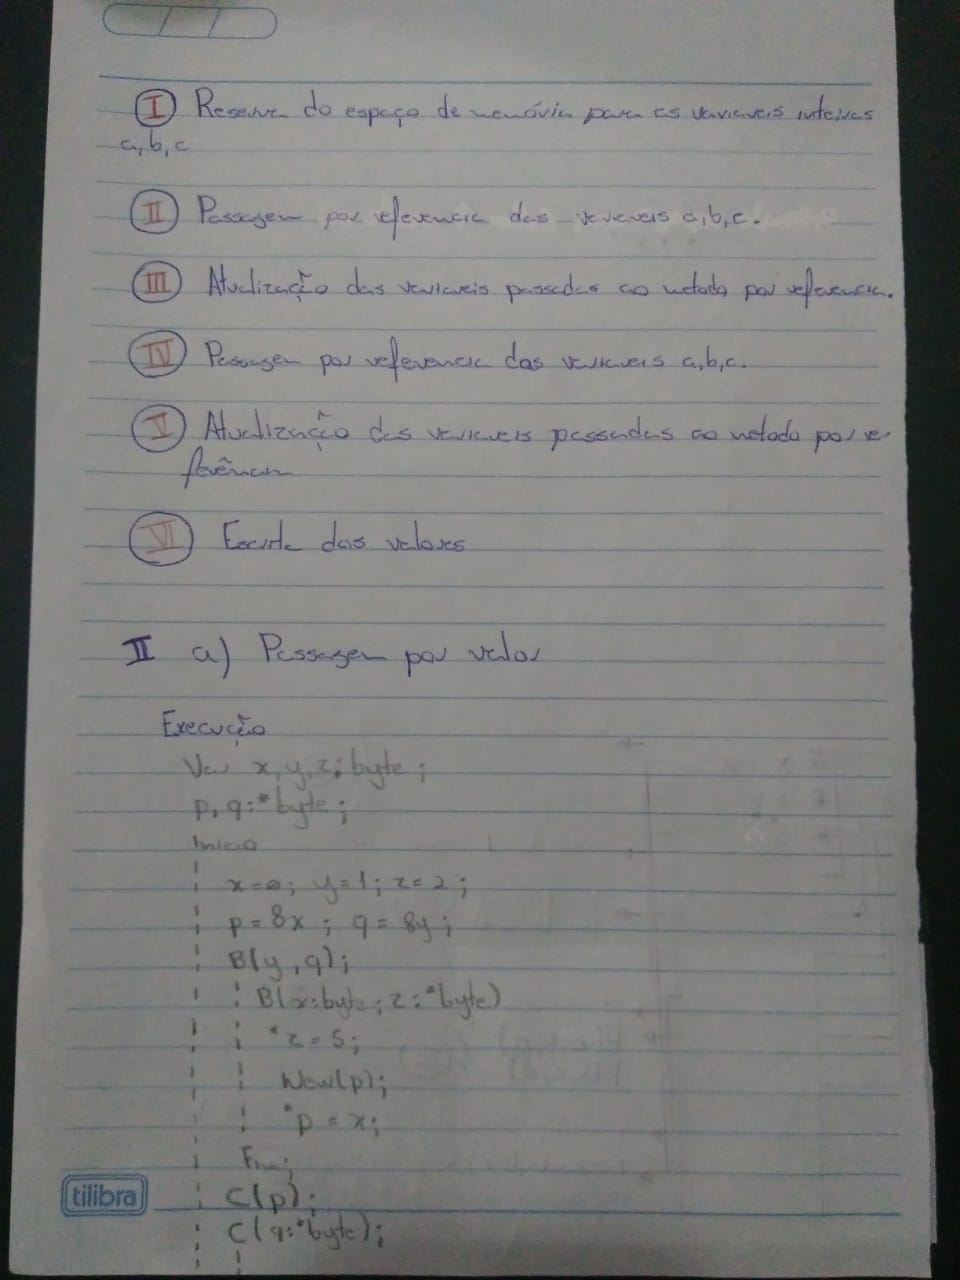 I Reserva do espaço de memória para as variaveis inteiras
a, b, c
II Passagem por referencia das variaveis a, b, c.
III Atualização das variaveis passadas ao metodo por referencia.
IV Passagem por referencia das variaveis a,b,c.
V Atualização das variaveis passadas ao metodo por re-
ferência
VI Escrita dos valores
II a) Passagem por valor
Execução
Var x, y, z: byte;
p, q:*byte;
Inicio
x=0; y=1; z=2;
p=&x; q=&y;
B(y,q);
B(x:byte; z:*byte)
*z=5;
New(p);
*p = x;
Fim;
tilibra
C(p);
C(q:*byte);